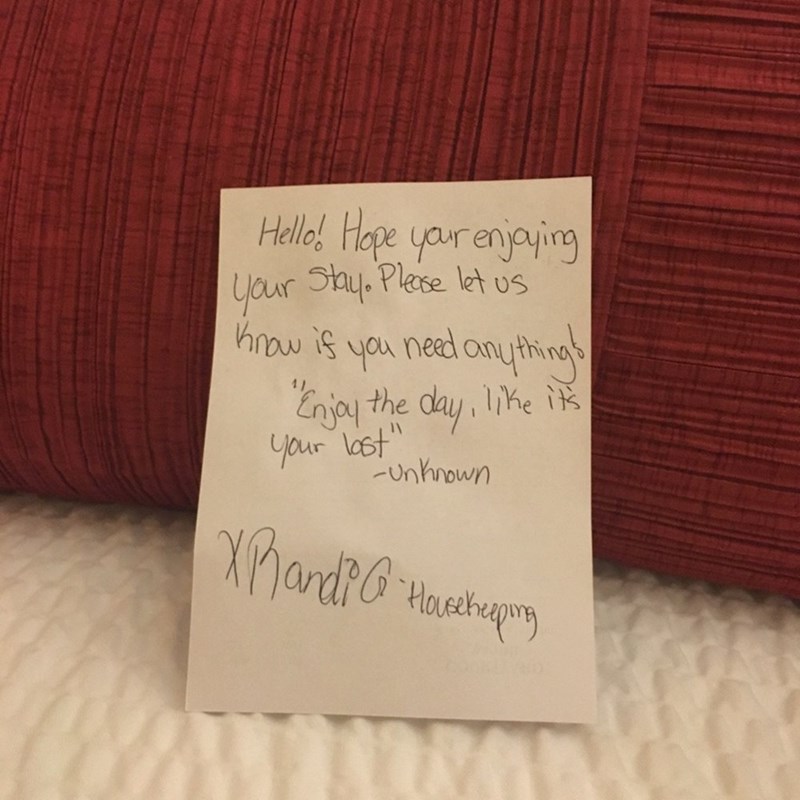 Hello! Hope your enjoying
your stay. Please let us
know if you need anything!
"Enjoy the day, like it's
your last"
-unknown
X Randi G - Housekeeping